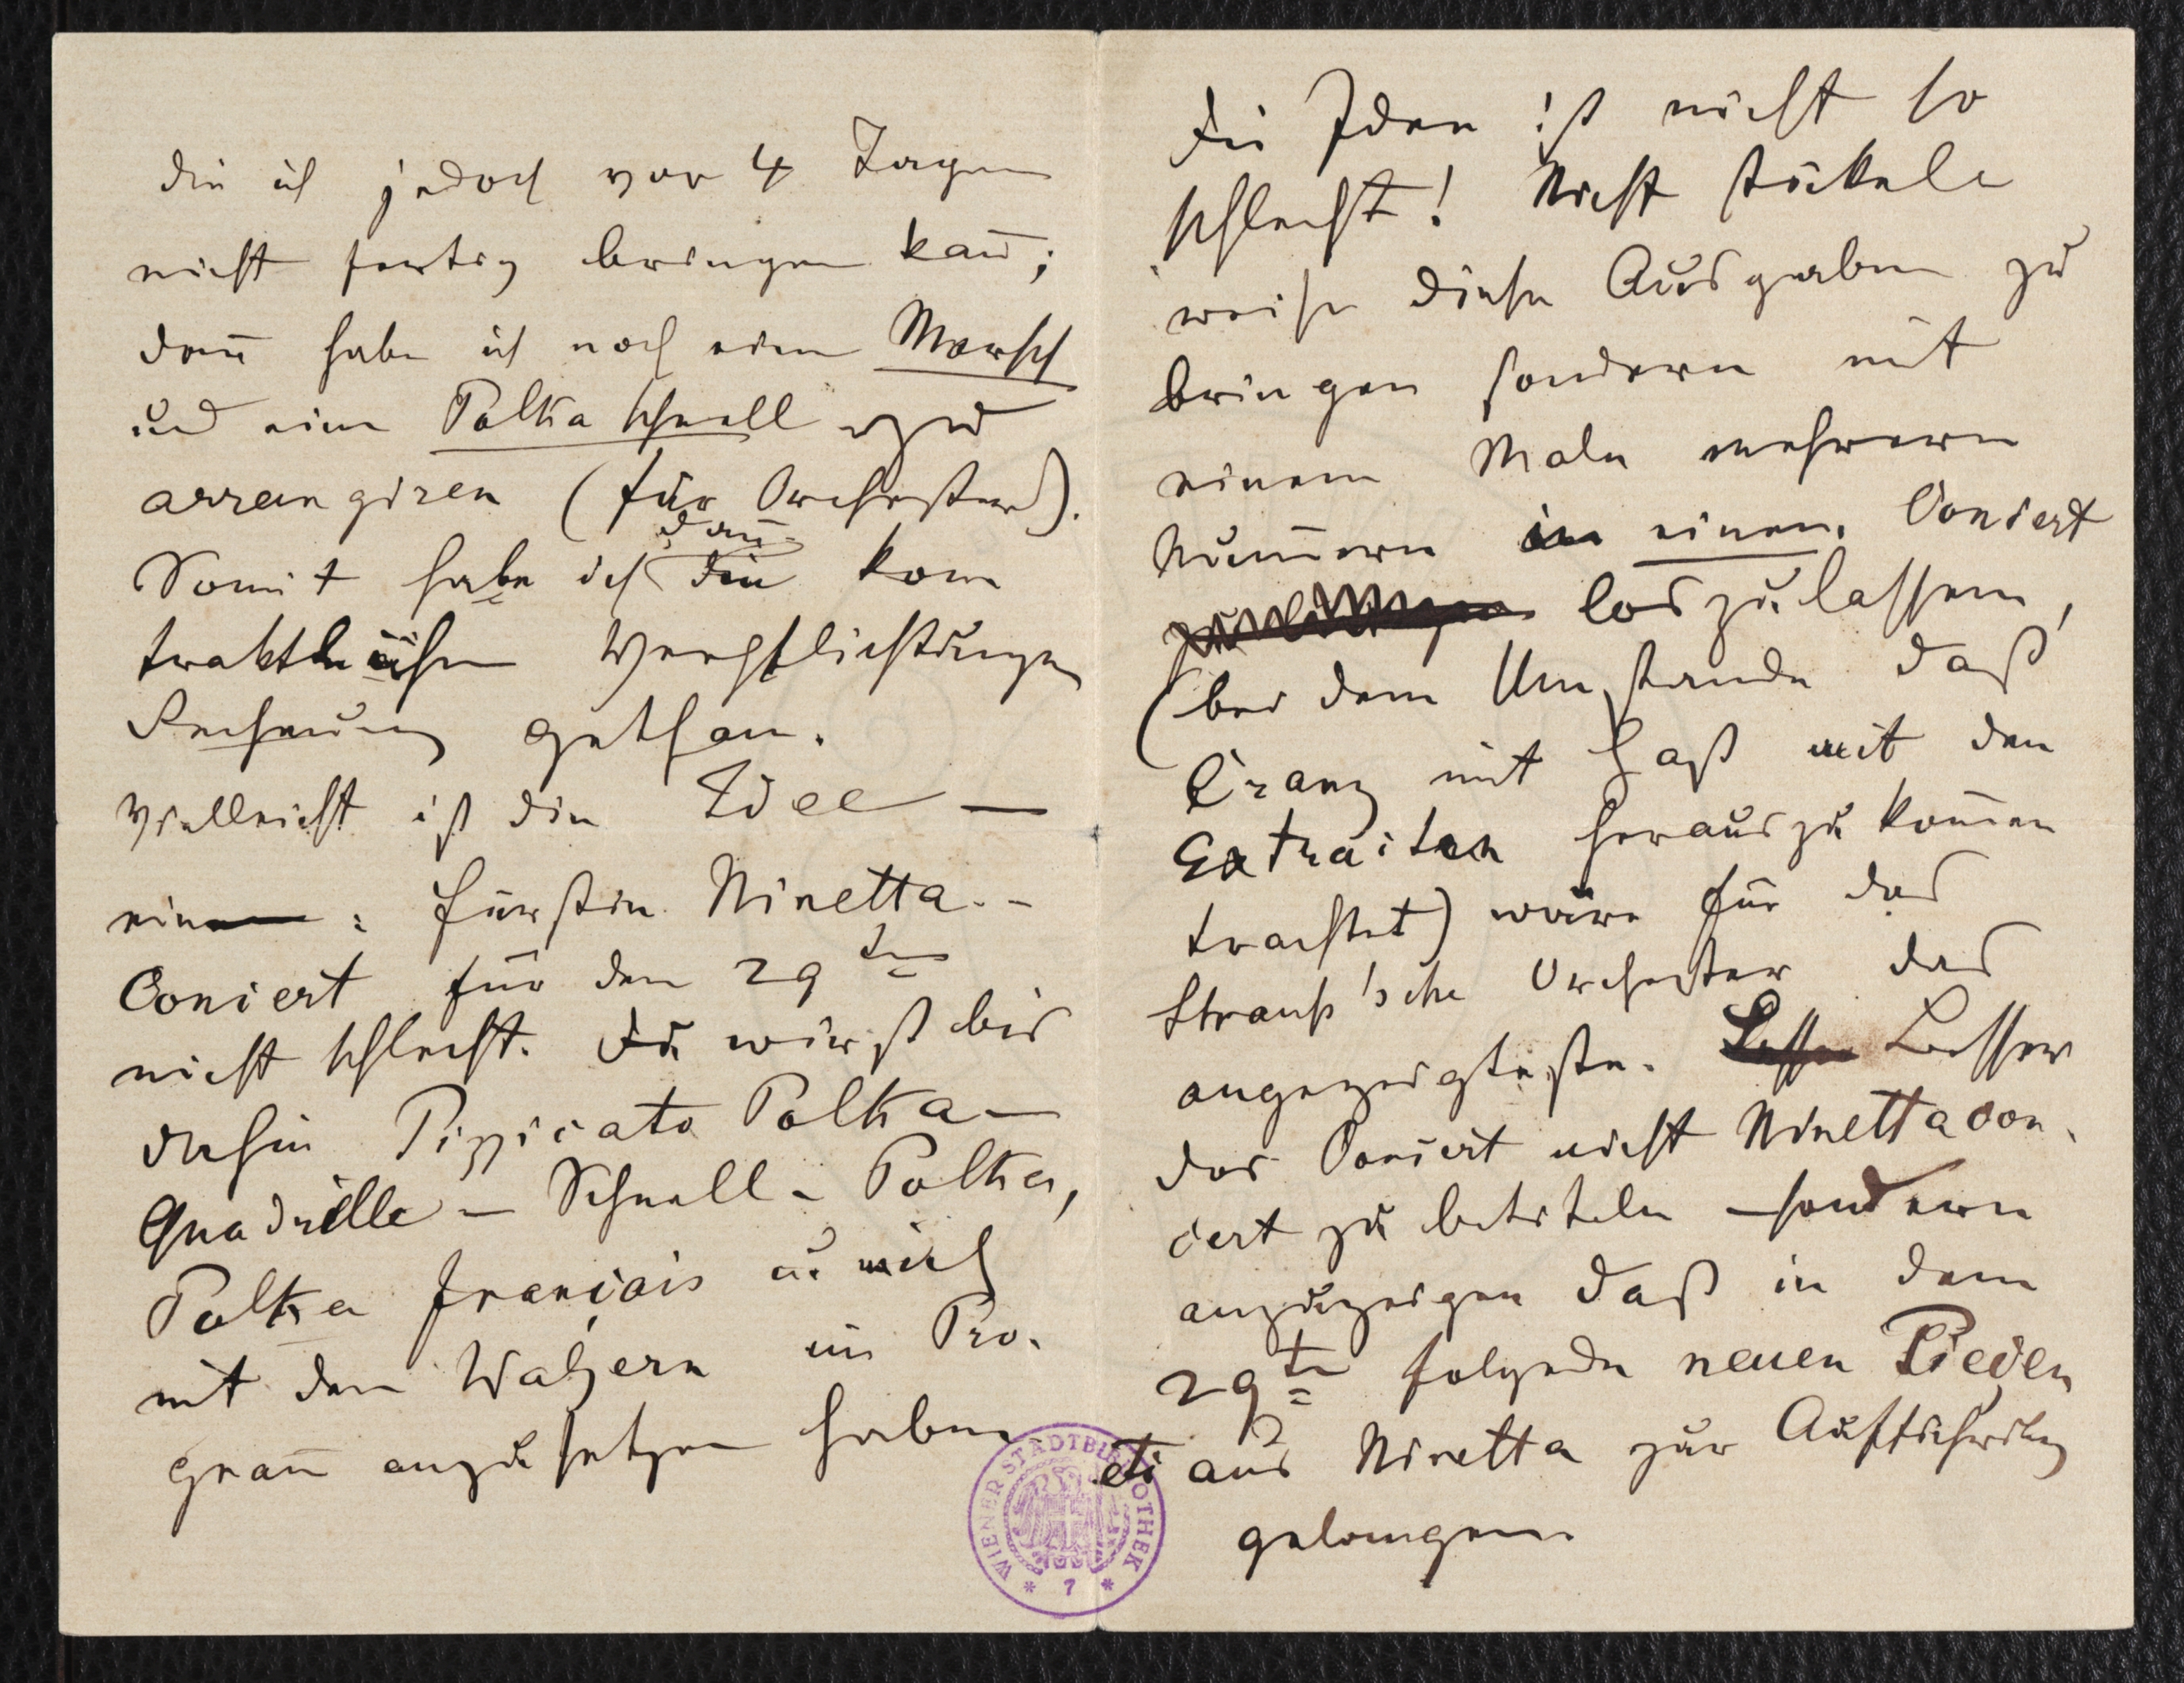 die ich jedoch vor 4 Tagen
nicht fertig bringen kan̄;
dan̄ habe ich noch einen Marsch
und eine Polka schnell zu
arrangiren (für Orchester).
dan̄
Somit habe ich den kon
traktlichen Verpflichtungen
Rechnung gethan.
Vielleicht ist die Idee —
eines: Fürstin Ninetta -
Concert für den 29ten
nicht schlecht. Du wirst bis
dahin Pizzicato Polka —
Quadrille — Schnell-Polka,
Polka français u. mich
mit den Walzern im Pro-
gram̄ anzusetzen haben
Die Idee ist nicht so
schlecht! Nicht stückel
weise diese Ausgaben zu
bringen sondern mit
einem Male mehrere
Num̄ern in einem Concert
loszulassen,
(bei dem Umstande daß
Cranz mit Haß mit den
Extraiten herauszukom̄en
trachtet) wäre für das
Strauß'sche Orchester das
angezeigteste. Besser
das Concert nicht Ninettacon-
cert zu betiteln – sondern
anzuzeigen daß in dem
29ten folgende neuen Pieçen
aus Ninetta zur Aufführung
gelangen
WIENER STADTBIBLIOTHEK
* 7 *